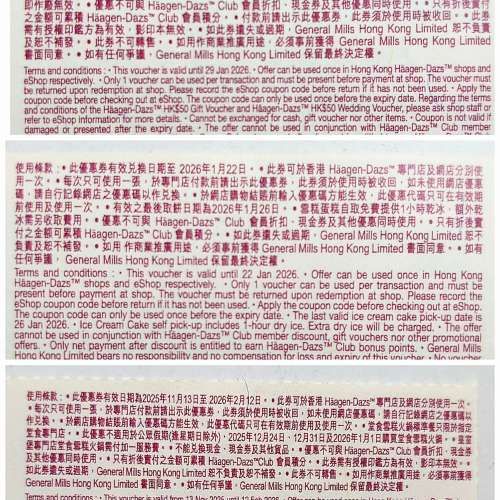 即作廢無効。 • 優惠不可與 Häagen-Dazs™ Club 會員折扣，現金券及其他優惠同時使用。 • 只有折後實付
之金額可累積 Häagen-Dazs™ Club 會員積分。 • 付款前請出示此優惠券，此券須於使用時被收回。 • 此券
需有授權印鑑方為有效，影印本無效。 • 如此券遺失或過期，General Mills Hong Kong Limited 恕不負責
及恕不補發。 • 此券不可轉售。 • 如用作商業推廣用途，必須事前獲得 General Mills Hong Kong Limited
書面同意。 • 如有任何爭議，General Mills Hong Kong Limited 保留最終決定權。
Terms and conditions : • This voucher is valid until 29 Jan 2026. • Offer can be used once in Hong Kong Häagen-Dazs™ shops and
eShop respectively. • Only 1 voucher can be used per transaction and must be present before payment at shop. The voucher must
be returned upon redemption at shop. Please record the eShop coupon code before return if it has not been used. • Apply the
coupon code before checking out at eShop. The coupon code can only be used once before the expiry date. Regarding the terms
and conditions of the Häagen-Dazs™ HK$50 Gift Voucher and Häagen-Dazs™ HK$50 Wedding Voucher, please ask shop staff or
refer to eShop information for more details. • Cannot be exchanged for cash, gift voucher nor other items. • Coupon is not valid if
damaged or presented after the expiry date. • The offer cannot be used in conjunction with Häagen-Dazs™ Club member
使用條款： • 此優惠券有效兌換日期至 2026年1月22日。 • 此券可於香港 Häagen-Dazs™ 專門店及網店分別使
用一次。 • 每次只可使用一張，於專門店付款前請出示此優惠券，此券須於使用時被收回，如未使用網店優惠
碼，請自行記錄網店之優惠碼以作兌換。 • 於網店購物結賬前輸入優惠碼方能生效，此優惠代碼只可在有效期
前使用及使用一次。 • 有效之最後取餅日期為2026年1月26日。 • 雪糕蛋糕自取免費提供1小時乾冰，額外乾
冰需另收取費用。 • 優惠不可與 Häagen-Dazs™ Club 會員折扣，現金券及其他優惠同時使用。 • 只有折後實付
之金額可累積 Häagen-Dazs™ Club 會員積分。 • 如此券遺失或過期，General Mills Hong Kong Limited 恕不
負責及恕不補發。 • 如用作商業推廣用途，必須事前獲得 General Mills Hong Kong Limited 書面同意。 • 如有
任何爭議，General Mills Hong Kong Limited 保留最終決定權。
Terms and conditions : • This voucher is valid until 22 Jan 2026. • Offer can be used once in Hong Kong
Häagen-Dazs™ shops and eShop respectively. • Only 1 voucher can be used per transaction and must be
present before payment at shop. The voucher must be returned upon redemption at shop. Please record the
eShop coupon code before return if it has not been used. • Apply the coupon code before checking out at eShop.
The coupon code can only be used once before the expiry date. • The last valid ice cream cake pick-up date is
26 Jan 2026. • Ice Cream Cake self pick-up includes 1-hour dry ice. Extra dry ice will be charged. • The offer
cannot be used in conjunction with Häagen-Dazs™ Club member discount, gift vouchers nor other promotional
offers. • Only net payment after discount is entitled to earn Häagen-Dazs™ Club bonus points. • General Mills
Hong Kong Limited bears no responsibility and no compensation for loss and expiry of this voucher. • No voucher
使用條款： • 此優惠券有效日期為2025年11月13日至2026年2月12日。 • 此券可於香港 Häagen-Dazs™ 專門店及網店分別使用一次。
• 每次只可使用一張，於專門店付款前請出示此優惠券，此券須於使用時被收回，如未使用網店優惠碼，請自行記錄網店之優惠碼以
作兌換。 • 於網店購物結賬前輸入優惠碼方能生效，此優惠代碼只可在有效期前使用及使用一次。
堂食專門店。 • 此優惠不適用於公眾假期(逢星期日除外)、2025年12月24日、12月31日及2026年1月1日購買堂食雪糕火鍋。
門店堂食雪糕火鍋需另付加一服務費。 • 不能兌換現金、現金券及其他貨品。
同時使用。 • 只有折後實付之金額可累積 Häagen-Dazs™Club會員積分。 • 此券需有授權印鑑方為有效，影印本無效。 • 如
此券遺失或過期，General Mills Hong Kong Limited 恕不負責及恕不補發。
General Mills Hong Kong Limited 書面同意。 • 如有任何爭議，General Mills Hong Kong Limited 保留最終決定權。
Terms and conditions : • This voucher is valid from 13 Nov 2025 until 12 Feb 2026.